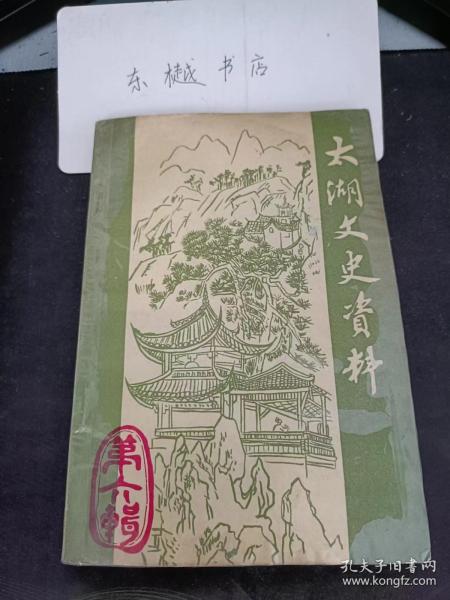 东樾书店
太湖文史資料
第六輯
孔夫子旧书网
www.kongfz.com